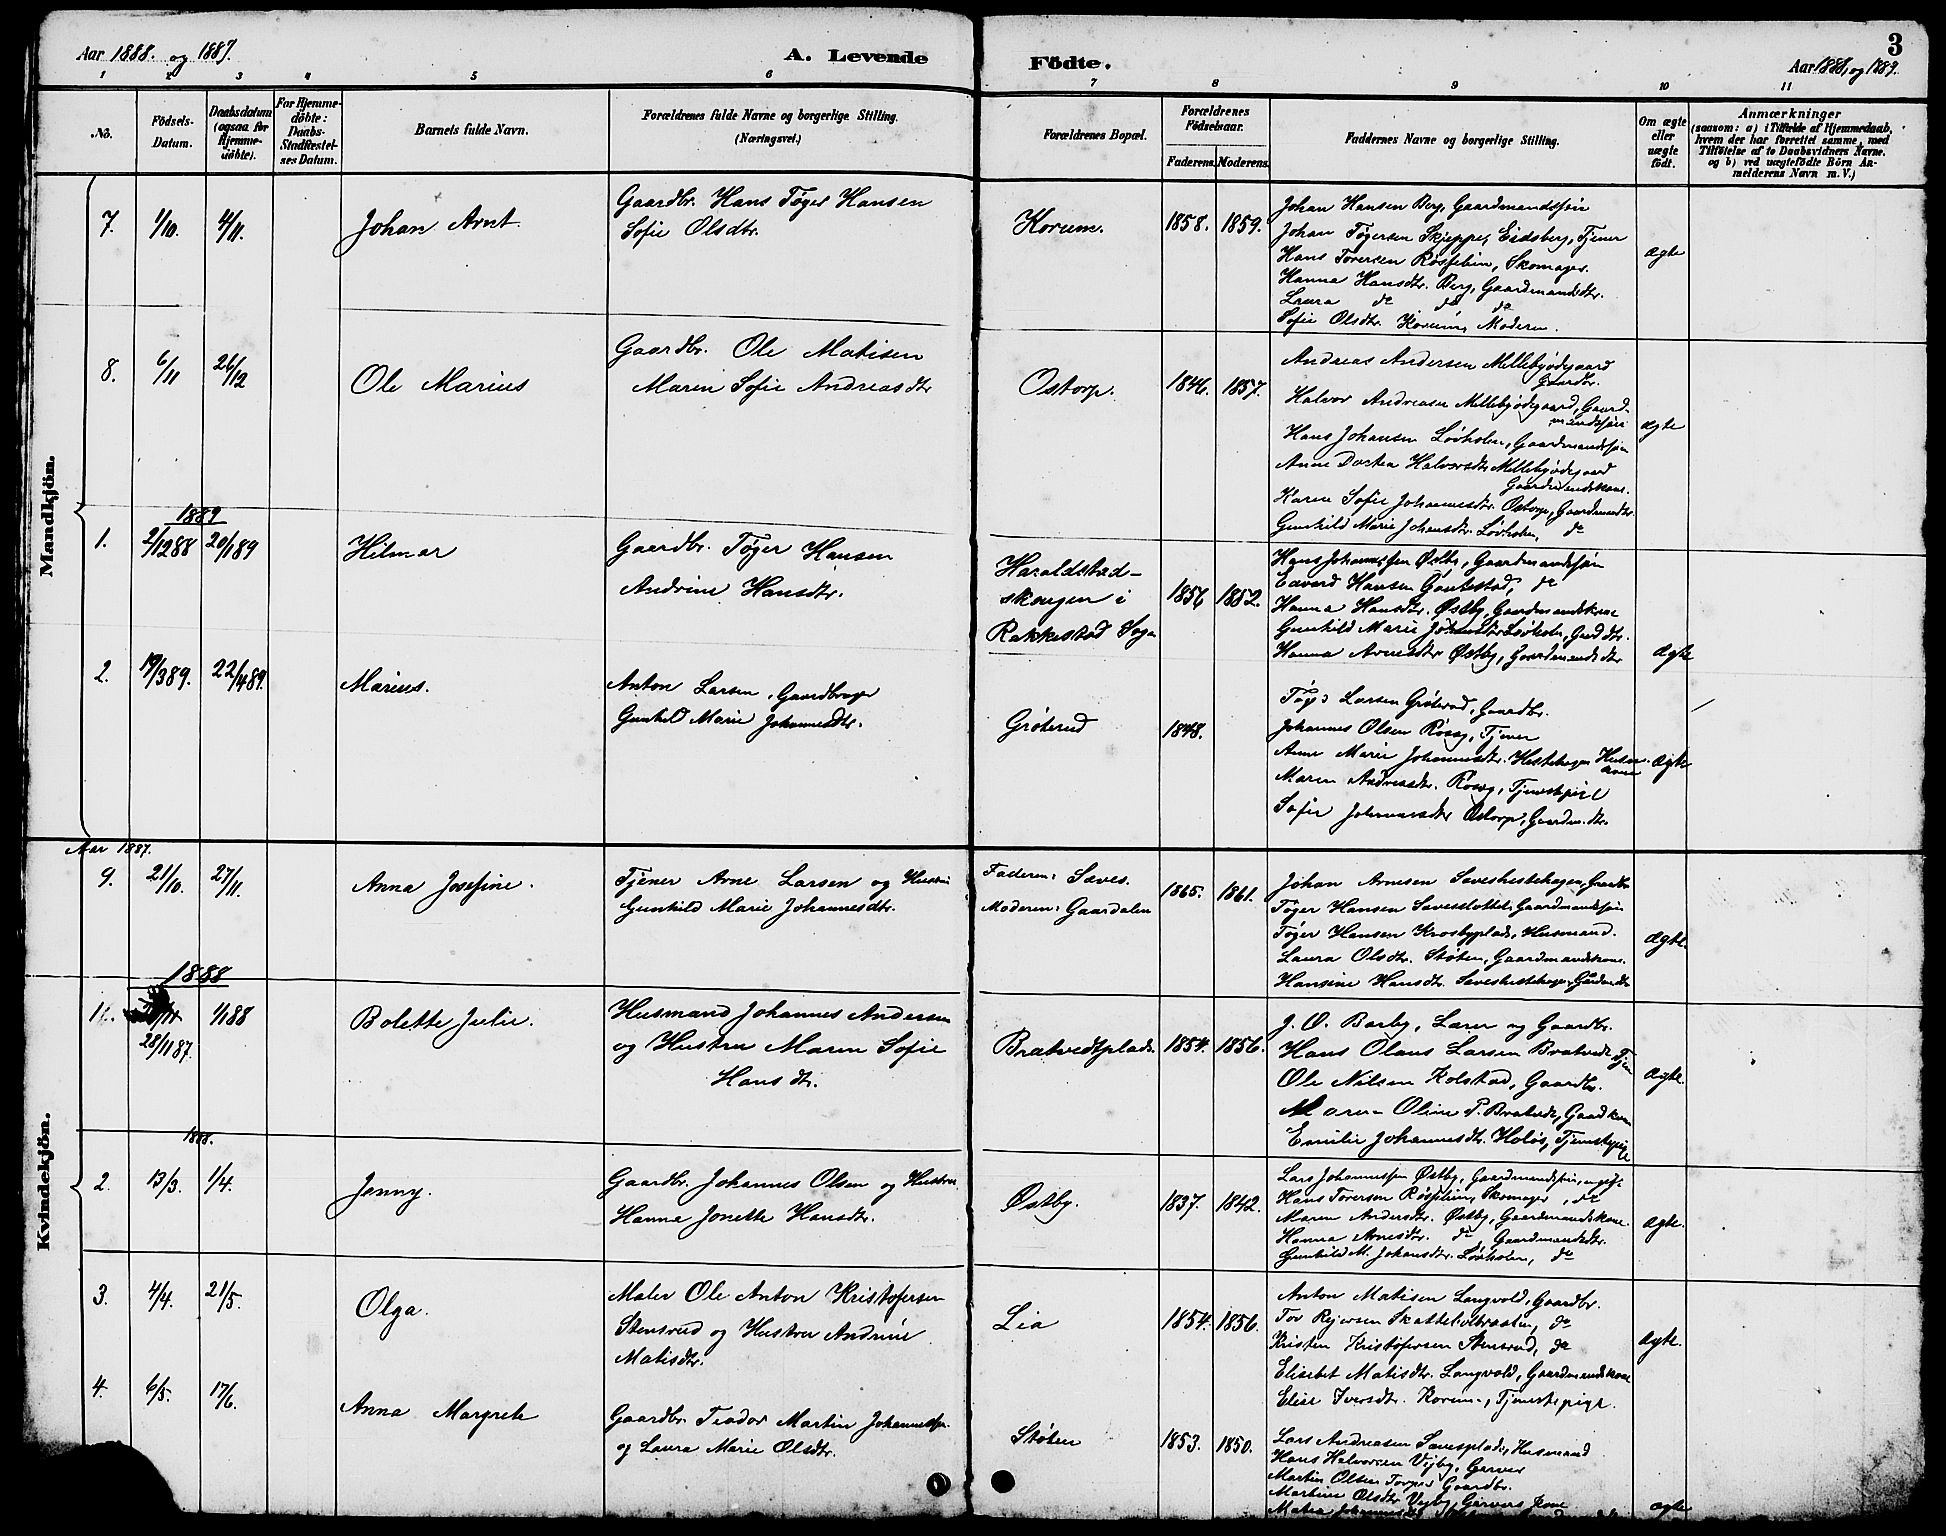 Aar 1888. og 1887.
A. Levende
Födte.
3
Aar 1888, og 1889.
1 2 3 4 5 6 7 8 9 10 11
No.
Födsels-Datum.
Daabsdatum (ogsaa for Hjemme-döbte).
For Hjemme-döbte: Daabs-Stadfæstel-ses Datum.
Barnets fulde Navn.
Forældrenes fulde Navne og borgerlige Stilling. (Næringsvei.)
Forældrenes Bopæl.
Forældrenes Födselsaar.
Faderens. Moderens.
Faddernes Navne og borgerlige Stilling.
Om ægte eller uægte födt.
Anmærkninger
(saasom: a) i Tilfælde af Hjemmedaab,
hvem der har forrettet samme, med
Tilföielse af to Daabsvidners Navne,
og b) ved uægtefödte Börn An-
melderens Navn m. V.)
Mandkjön.
7. 1/10. 4/11. Johan Arnt.
Gaardbr. Hans Tøger Hansen
Sofie Olsdtr.
Korum. 1858. 1859.
Johan Hansen Berg, Gaardmandssøn
Johan Tøgersen Skjeppe, Eidsberg, Tjener
Hans Toversen Røsselien, Skomager.
Hanna Hansdtr. Berg, Gaardmandsdtr.
Laura do do do
Sofie Olsdtr. Korum, Moderen.
ægte
8. 6/11 26/12 Ole Marius
Gaardbr. Ole Matisen
Maren Sofie Andreasdtr
Ostorp. 1846. 1857.
Andreas Andersen Mellebyødegaard
Gaardbr.
Halvor Andreasen Mellebyødegaard, Gaard-
mandssøn
Hans Johansen Løvholen, Gaardmandssøn
Anne Dortea Halvorsdtr Mellebyødegaard
Gaardmandskone.
Karen Sofie Johannesdtr. Ostorp, Gaardmandsdtr.
Gunhild Marie Johansdtr. Løvholen, do
ægte
1889
1. 2/12 88 20/1 89 Hilmar
Gaardbr. Tøger Hansen
Andrine Hansdtr.
Haraldstad-
skougen i
Rakkestad Sogn
1856 1852.
Hans Johannessen Østby, Gaardmandssøn
Edvard Hansen Gautestad, do
Hanna Hansdtr. Østby, Gaardmandskone
Gunhild Marie Johansdtr Løvholen, Gmd dtr.
Hanna Arnesdtr Østby, Gaardmands dtr
ægte
2. 19/3 89. 22/4 89. Marius.
Anton Larsen, Gaardbruger
Gunhild Marie Johannesdtr.
Gröterud 1848.
Tøger Larsen Gröterud, Gaardbr.
Johannes Olsen Rosæg, Tjener
Anne Marie Johannesdtr. Hestehagen Husm.
Maren Andreasdtr. Rosæg, Tjenestepige
Sofie Johannesdtr Ostorp, Gaardm. dtr.
ægte
Aar 1887.
Kvindekjön.
9. 21/10. 27/11. Anna Josefine.
Tjener Arne Larsen og Hustru
Gunhild Marie Johannesdtr.
Faderen: Saves.
Moderen: Gaardalen
1865. 1861.
Johan Arnesen Saveshestehagen, Gaardbr
Tøger Hansen Savesslottet, Gaardmandssøn
Tøger Hansen Krosbyplads, Husmand.
Laura Olsdtr. Støten, Gaardmandskone.
Hansine Hansdtr. Saveshestehagen, Gaardmdtr
ægte.
1888
1. 28/11 87. 1/1 88 Bolette Julie.
Husmand Johannes Andersen
og Hustru Maren Sofie
Hansdtr.
Bratvedtplads. 1854. 1856.
J. O. Barby, Lærer og Gaardbr.
Hans Olaus Larsen Bratvedt, Tjen
Ole Nilsen Kolstad, Gaardbr.
Maren Oline P. Bratvedt, Gaardkone
Emilie Johannesdtr. Holøs, Tjenestepige
ægte.
1888.
2. 13/3. 1/4. Jenny.
Gaardbr. Johannes Olsen og Hustru
Hanna Jonette Hansdtr.
Østby. 1837. 1842.
Lars Johannessen Østby, Gaardmandssøn, ugift
Hans Toversen Røsselien, Skomager, do
Maren Andersdtr. Østby, Gaardmandskone.
Hanna Arnesdtr. do Gaardmandsdtr.
Gunhild M. Johansdtr. Løvholen, do
ægte.
3. 4/4. 21/5. Olga.
Maler Ole Anton Kristofersen
Stensrud og Hustru Andrine
Matisdtr.
Lia 1854. 1856.
Anton Matisen Langvold, Gaardbr.
Tov Rejersen Skattelidbraaten, do
Kristen Kristofersen Stensrud, do
Elisabet Matisdtr. Langvold, Gaardmandskone
Elise Iversdtr. Korum, Tjenestepige.
ægte.
4. 6/5. 17/6. Anna Margrete
Gaardbr. Teodor Martin Johannessen
og Laura Marie Olsdtr.
Støten 1853. 1850.
Lars Andreasen Savesplads, Husmand
Hans Halvorsen Vejby, Garver
Martin Olsen Torper Gaardbr.
Martine Olsdtr Vejby, Garvers Kone
ægte